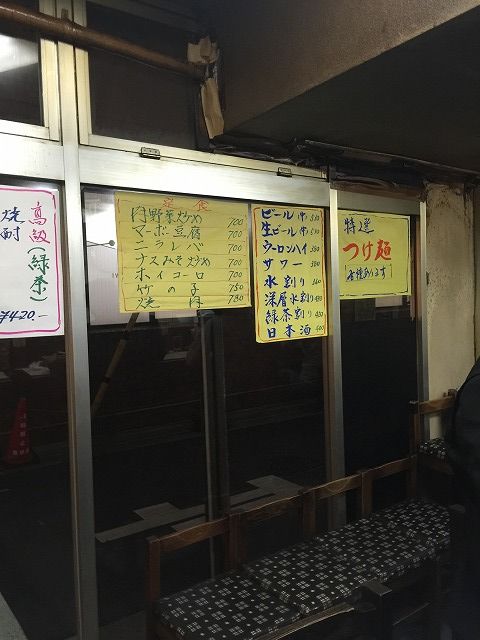 高級(緑茶)
焼酎
¥420.-
定食
肉野菜炒め 700
マーボ豆腐 700
ニラレバ 700
ナスみそ炒め 700
ホイコーロ 700
竹の子 750
焼肉 780
ビール(中)
生ビール(中)
ウーロンハイ
サワー
水割り
深層水割り
緑茶割り
日本酒
特選
つけ麺
各種あります